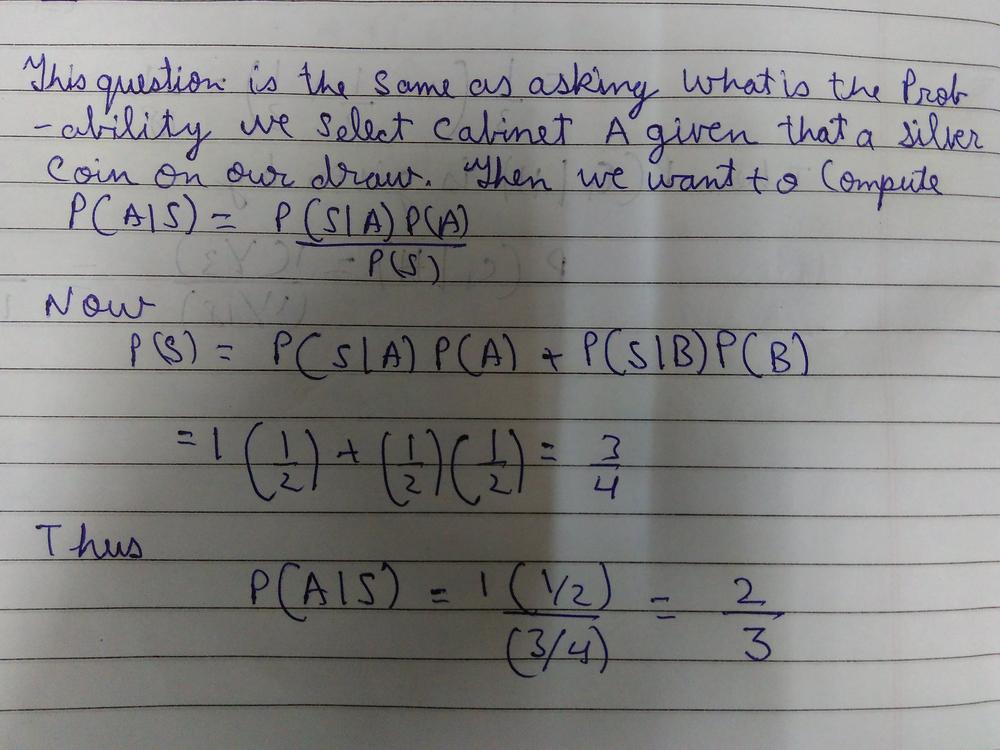 This question is the same as asking what is the Prob
-ability we select Cabinet A given that a silver
Coin on our draw. Then we want to Compute
P(A|S) = P(S|A) P(A)
P(S)
Now
P(S) = P(S|A) P(A) + P(S|B) P(B)
= 1 (1/2) + (1/2) (1/2) = 3/4
Thus
P(A|S) = 1 (1/2) / (3/4) = 2/3